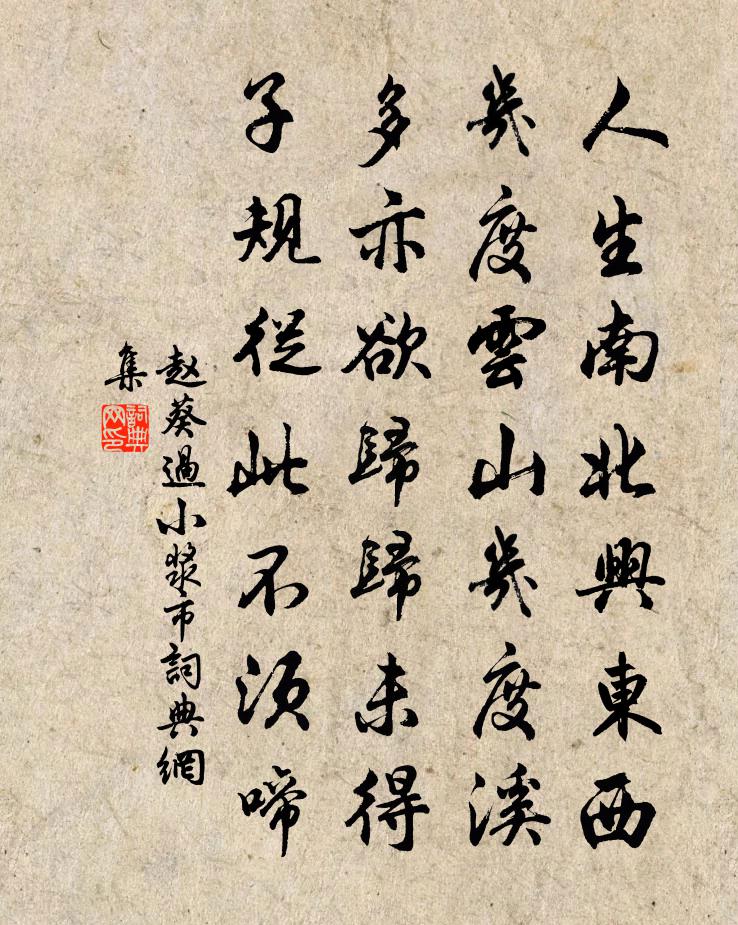 人生南北與東西
幾度雲山幾度溪
多亦欲歸歸未得
子規從此不須啼
赵葵過小漿市詞典網
集
詞典
网印